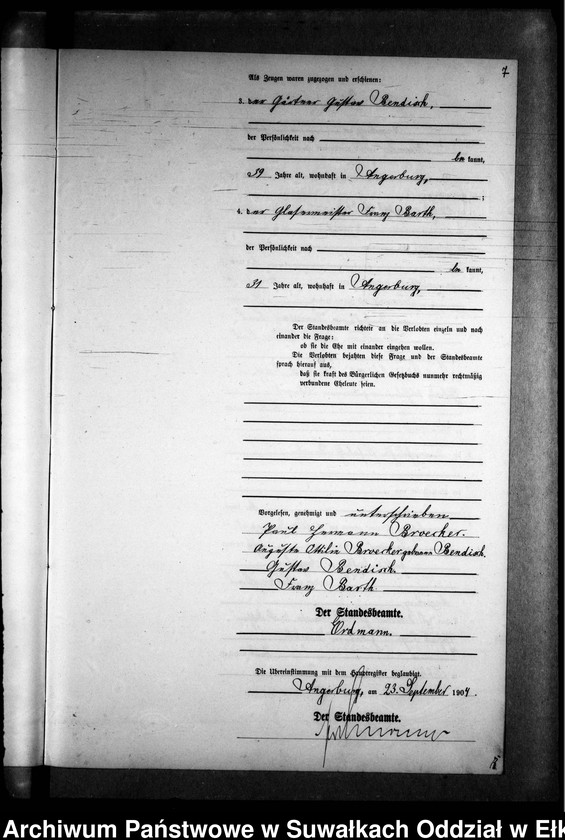 7
Als Zeugen waren zugezogen und erschienen:
3. der Gärtner Gustav Bendisch,
der Persönlichkeit nach
be kannt,
59 Jahre alt, wohnhaft in Angerburg,
;
4. der Glasermeister Franz Barth,
der Persönlichkeit nach
be kannt,
31 Jahre alt, wohnhaft in Angerburg,
Der Standesbeamte richtete an die Verlobten einzeln und nach
einander die Frage:
ob sie die Ehe mit einander eingehen wollen.
Die Verlobten bejahten diese Frage und der Standesbeamte
sprach hierauf aus,
daß sie kraft des Bürgerlichen Gesetzbuchs nunmehr rechtmäßig
verbundene Eheleute seien.
Vorgelesen, genehmigt und unterschrieben
Paul Hermann Broecker.
Auguste Ottilie Broecker geborene Bendisch.
Gustav Bendisch.
Franz Barth
Der Standesbeamte.
Erdmann.
Die Übereinstimmung mit dem Hauptregister beglaubigt.
Angerburg, am 23. September 1904.
Der Standesbeamte.
Archiwum Państwowe w Suwałkach Oddział w Ełk